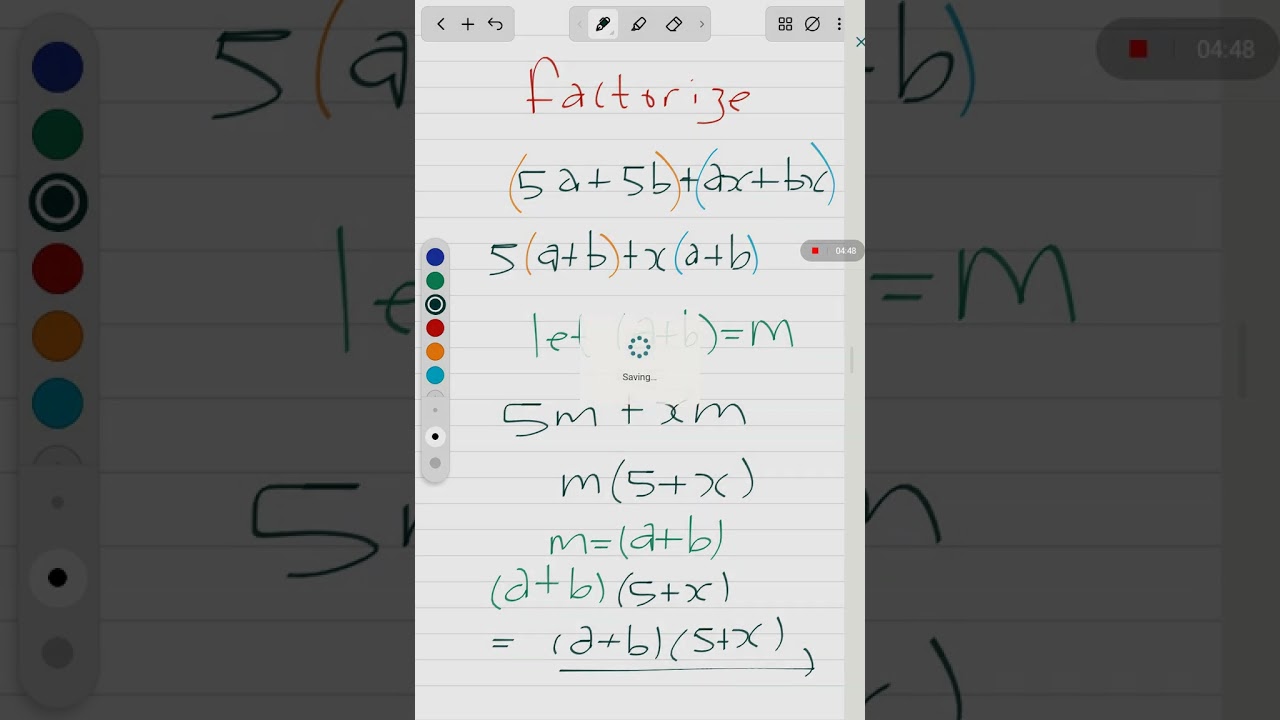 factorize
(5a+5b)+(ax+bx)
5(a+b)+x(a+b)
04:48
04:48
let (a+b)=m
Saving...
5m + xm
m(5+x)
m=(a+b)
(a+b)(5+x)
= (a+b)(5+x)